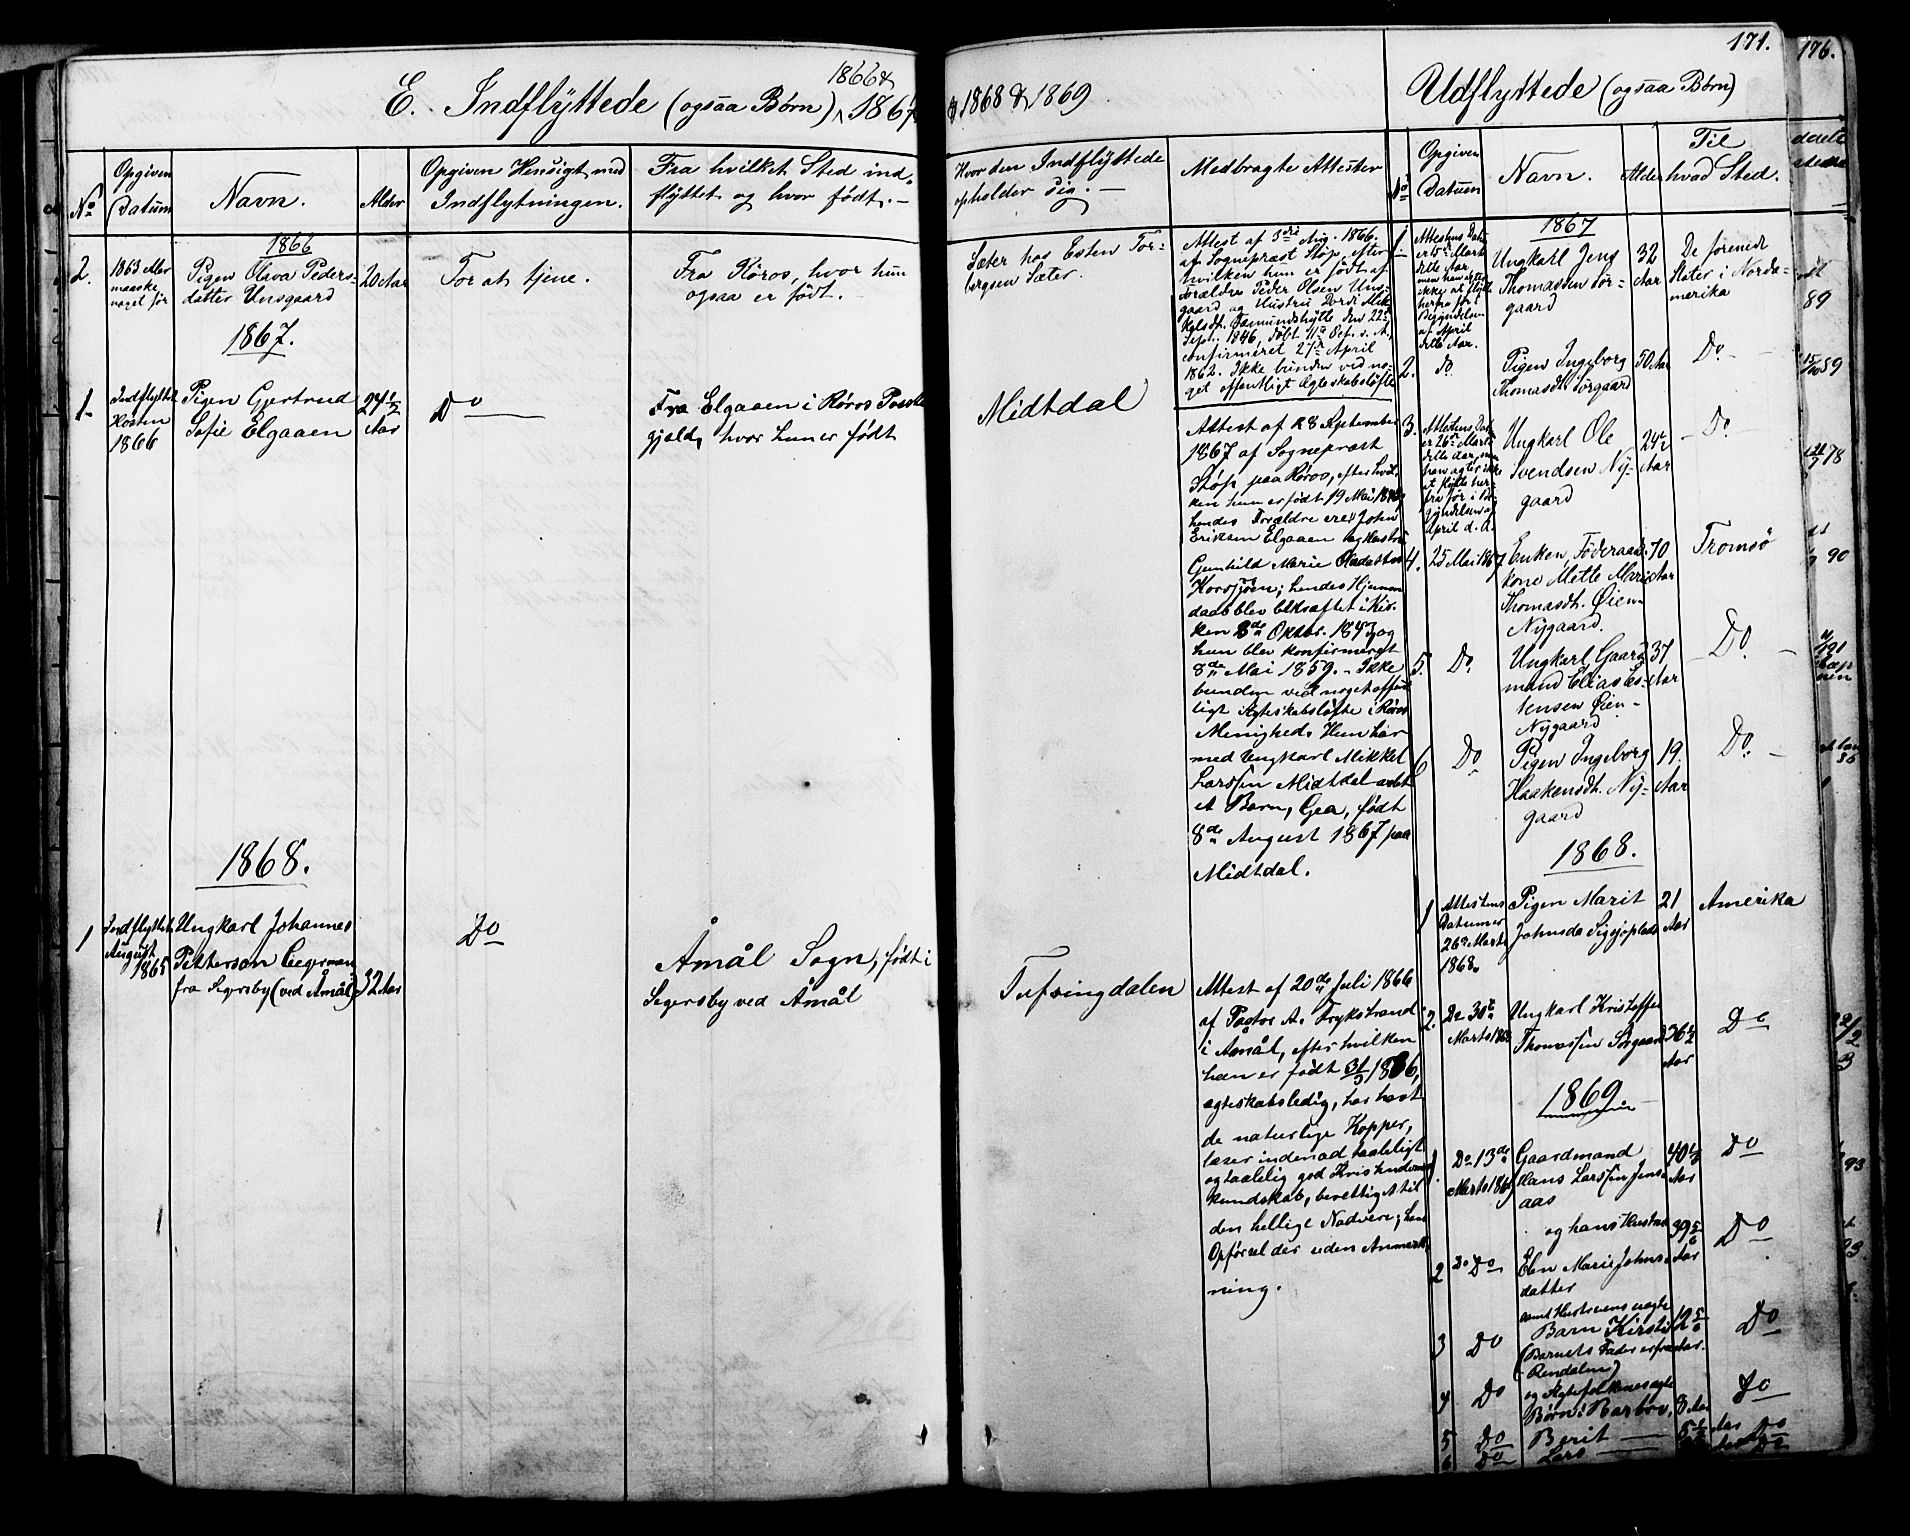 171.
176.
E. Indflyttede (ogsaa Børn) 1866 & 1867
& 1868 & 1869
Udflyttede (ogsaa Børn)
No
Opgiven
Datum
Navn.
Alder
Opgiven Hensigt med
Indflytningen.
Fra hvilket Sted ind-
flyttet og hvor født.
Hvor den Indflyttede
opholder sig.
Medbragte Attester
No
Opgiven
Datum
Navn.
Alder
Til
hvad Sted.
1866
2.
1863 eller
maaske
noget før
Pigen Olava Peders-
datter Unsgaard
20 Aar
For at tjene.
Fra Röros, hvor hun
ogsaa er født.
Sæter hos Esten Tor-
bergsen Sæter.
Attest af 3die Aug. 1866.
af Sogneprast Støp, efter
hvilken hun er født af
Forældre Peder Olsen Uns-
gaard og Hustru Dordi Mik-
kelsdt. Fæmundshytte den 22de
Sept. 1846, døbt 11te Oct. s. A.,
confirmeret 27de April
1862. Ikke bunden ved no-
get offentligt Ægteskabsløfte
1867.
1.
Indflyttet
Høsten
1866
Pigen Gjertrud
Sofie Elgaaen
24 1/2
Aar
Do
Fra Elgaaen i Röros Præste
gjeld, hvor hun er født
Midtdal
Attest af 28 September
1867 af Sogneprast
Støp paa Röros, efter hvil-
ken hun er født 19 Mai 1843,
hendes Forældre ere: John
Eriksen Elgaaen og Hustru
Gunhild Marie Oladatter
Korssjøen; hendes Hjemme
daab blev bekræftet i Kir-
ken 8de Oktbr. 1843, og
hun blev konfirmeret
8de Mai 1859. - Ikke
bunden ved noget offent
ligt Ægteskabsløfte i Röros
Menighed. Hun har
med Ungkarl Mikkel
Larssen Midtdal avlet
et Barn, Gea, født
8de August 1867 paa
Midtdal.
1868.
1
Indflyttet
August
1865
Ungkarl Johannes
Petterson
fra Segersby (ved Åmål)
32 Aar
Do
Åmål Sogn, født i
Segersby ved Åmål
Tufsingdalen
Attest af 20de Juli 1866
af Pastor A. Frykstrand
i Åmål, efter hvilken
han er født 31/3 1836,
ægteskabsledig, har havt
de naturlige Kopper,
læser indenad taaleligt
og taalelig god Kristendoms
kundskab, berettiget til
den hellige Nadvere; hans
Opførsel der uden Anmærk
ning.
1867
1.
Attestens Dat.
er 15de Marts
dette Aar
men han agter
ikke at flytte
herfra før i
Begyndelsen
af April
dette Aar.
Ungkarl Jens
Thomassen Sør-
gaard
32
Aar
De forenede
Stater i Norda-
merika
2.
Do
Pigen Ingeborg
Thomasdt. Sørgaard
30 Aar
Do
3.
Attestens Dat.
er 26de Marts
dette Aar, men
han agter ikke
at flytte her-
fra før i Be-
gyndelsen af
April d. A.
Ungkarl Ole
Svendsen Ny-
gaard
24 1/2
Aar
Do
4.
25 Mai 1867
Enken, Føderaads-
kone Mette Marie
Thomasdt. Øien-
Nygaard.
70
Aar
Tromsö
5.
Do
Ungkarl Gaard
mand Elias Es-
tensen Øien-
Nygaard
37
Aar
Do
6
Do
Pigen Ingeborg
Haakensdt. Ny-
gaard
19.
Aar
Do
1868.
1
Attestens
Datum er
26de Marts
1868.
Pigen Marit
Johnsdt.
21
Aar
Amerika
2.
Do 30te
Marts 1868
Ungkarl Kristoffer
Thomassen Sørgaard
36 1/2
Aar
Do
1869
1.
Do 13de
Marts 1869
Gaardmand
Hans Larssen Jens-
aas
40 1/2
Aar
Do
2
Do Do
og hans Hustru
Elen Marie Johns-
datter
39 5/6
Aar
Do
3
Do
samt Hustruens uægte
Barn Kirsti
(Barnets Fader er fra
Rendalen)
12 5/6
Aar.
Do
4
Do
og Ægtefolkenes ægte
Børn: Barbro,
8 Aar
Do
5
Do
Berit
5 1/2 Aar
Do
6
Do
Lars
Do